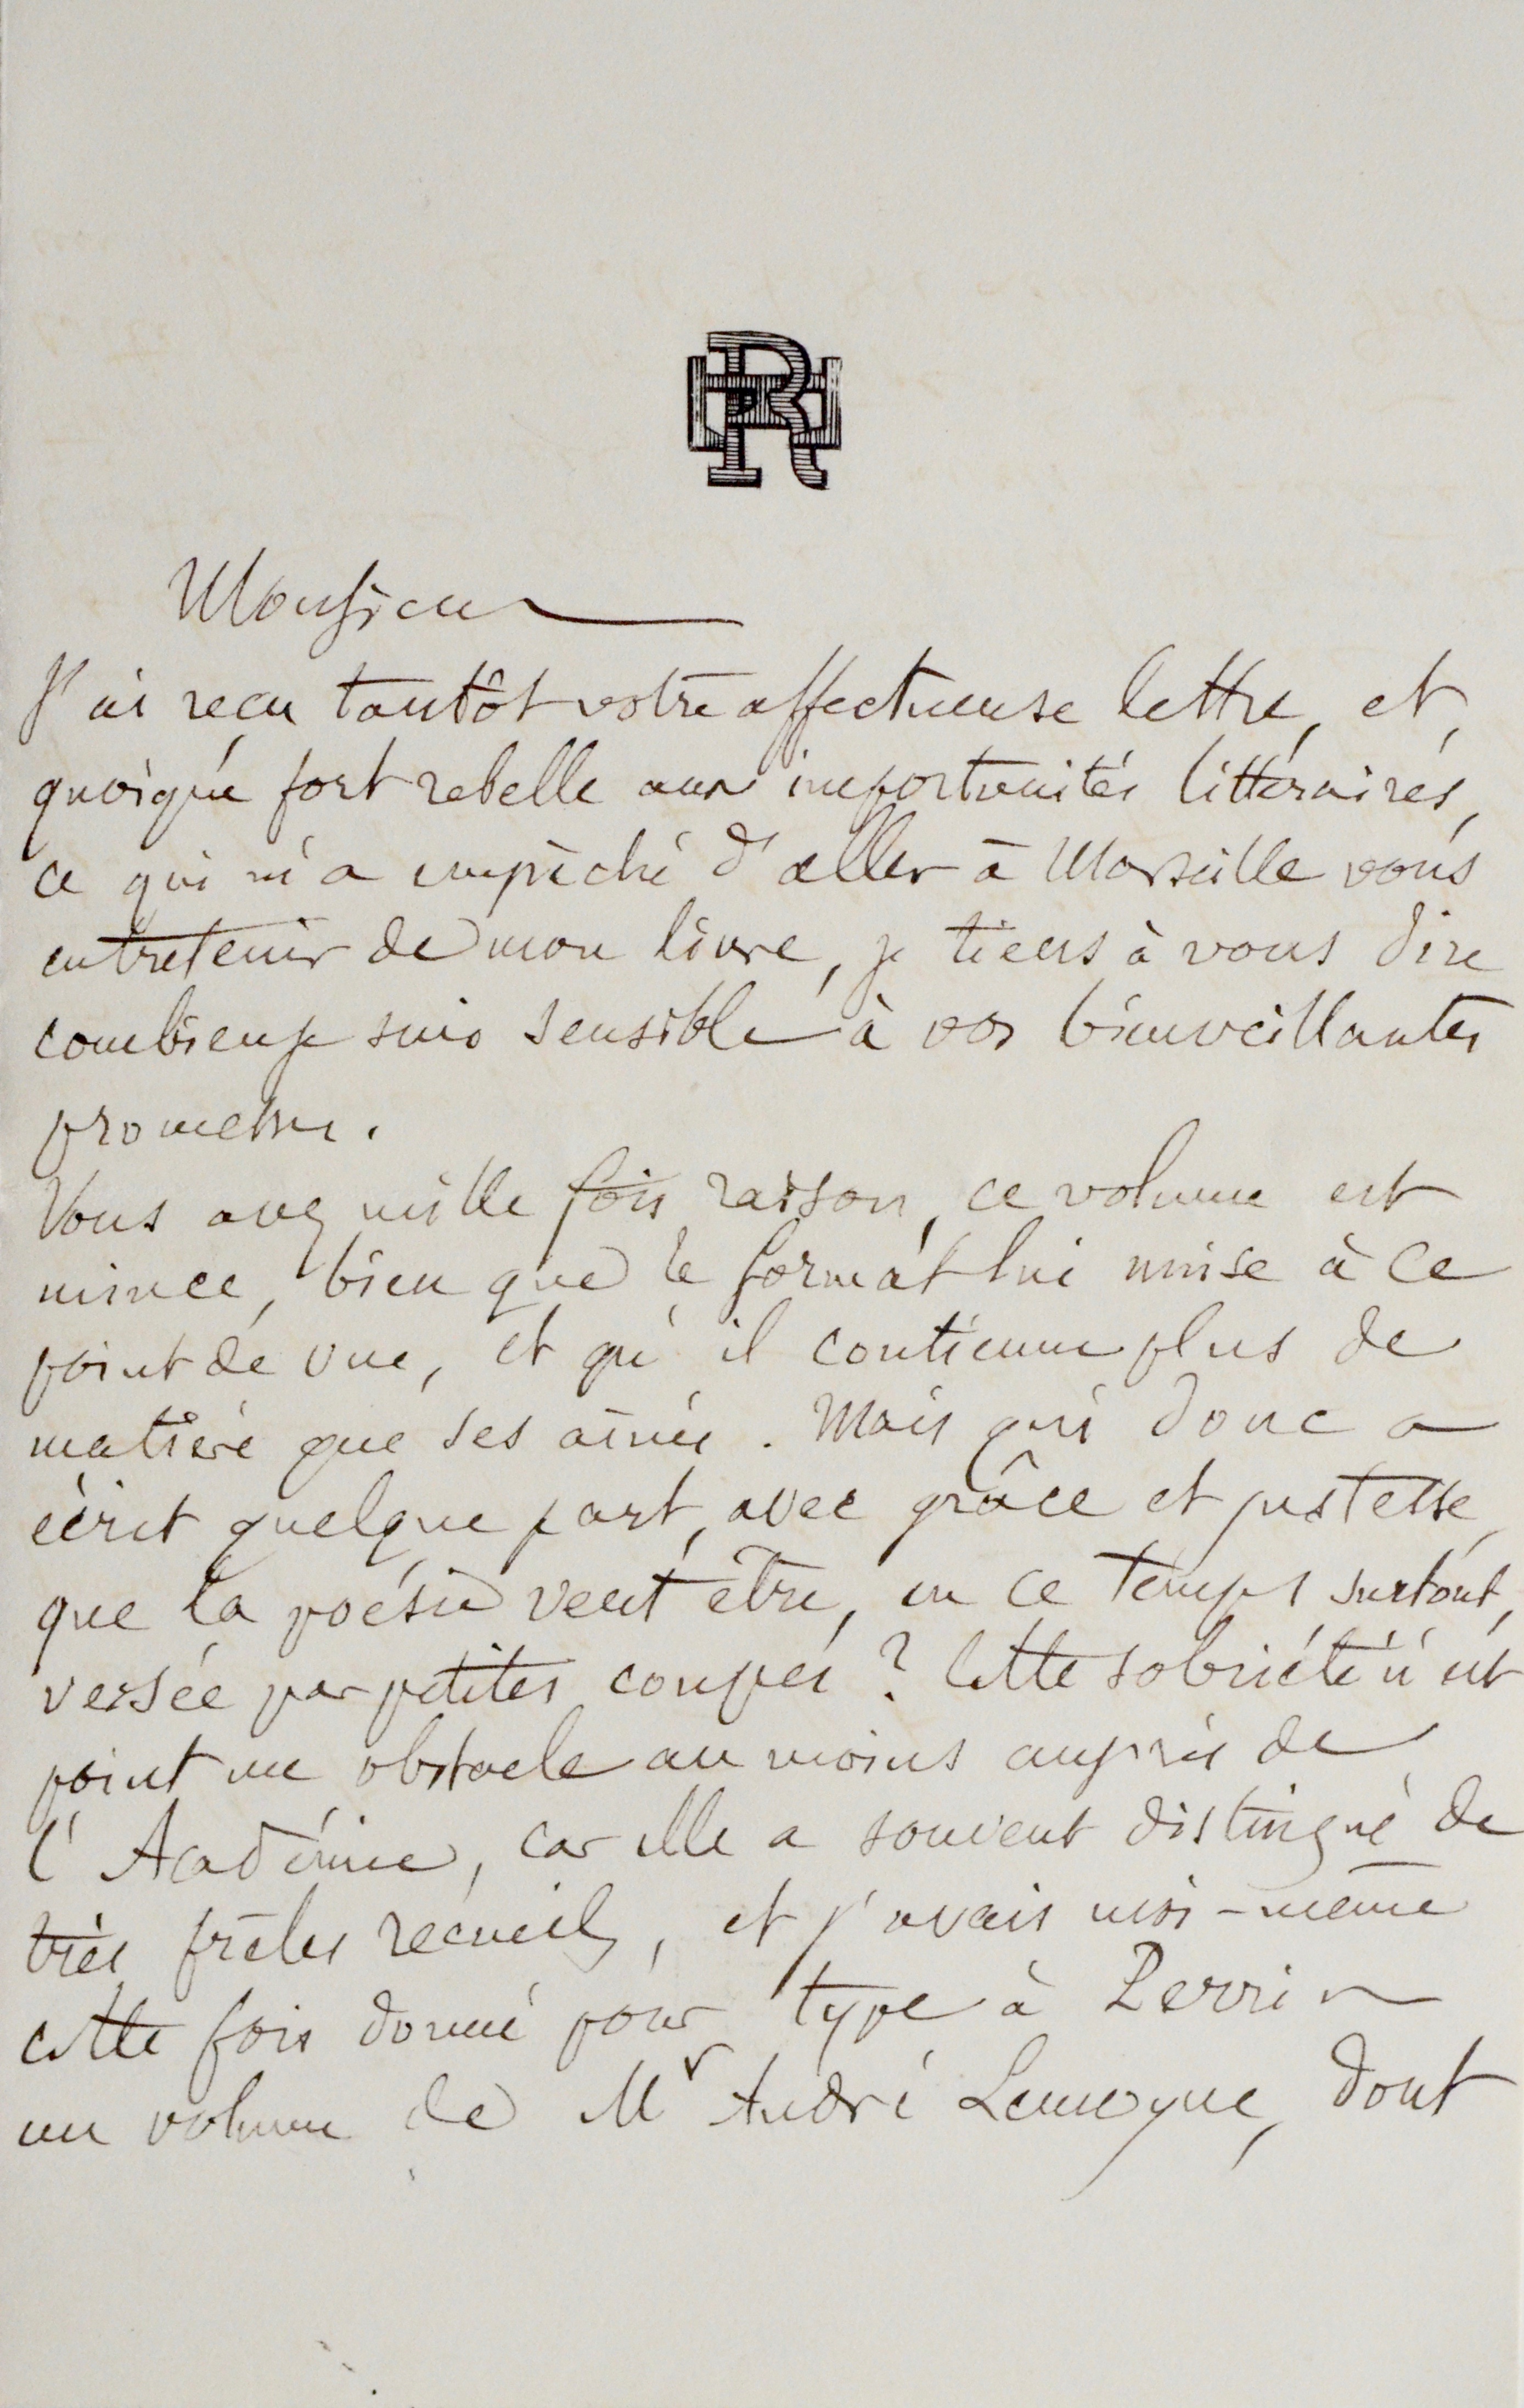 HR
Monsieur
J'ai reçu tantôt votre affectueuse lettre, et,
quoique fort rebelle aux importunités littéraires,
ce qui m'a empêché d'aller à Marseille vous
entretenir de mon livre, je tiens à vous dire
combien je suis sensible à vos bienveillantes
promesses.
Vous avez mille fois raison, ce volume est
mince, bien que le format lui nuise à ce
point de vue, et qu'il contienne plus de
matière que ses aînés. Mais qui donc a
écrit quelque part, avec grâce et justesse,
que la poésie veut être, en ce temps surtout,
versée par petites coupes ? Cette sobriété n'est
point un obstacle au moins auprès de
l'Académie, car elle a souvent distingué de
très frêles recueils, et j'avais moi-même
cette fois donné pour type à Perrin
un volume de Mr André Lemoyne, dont